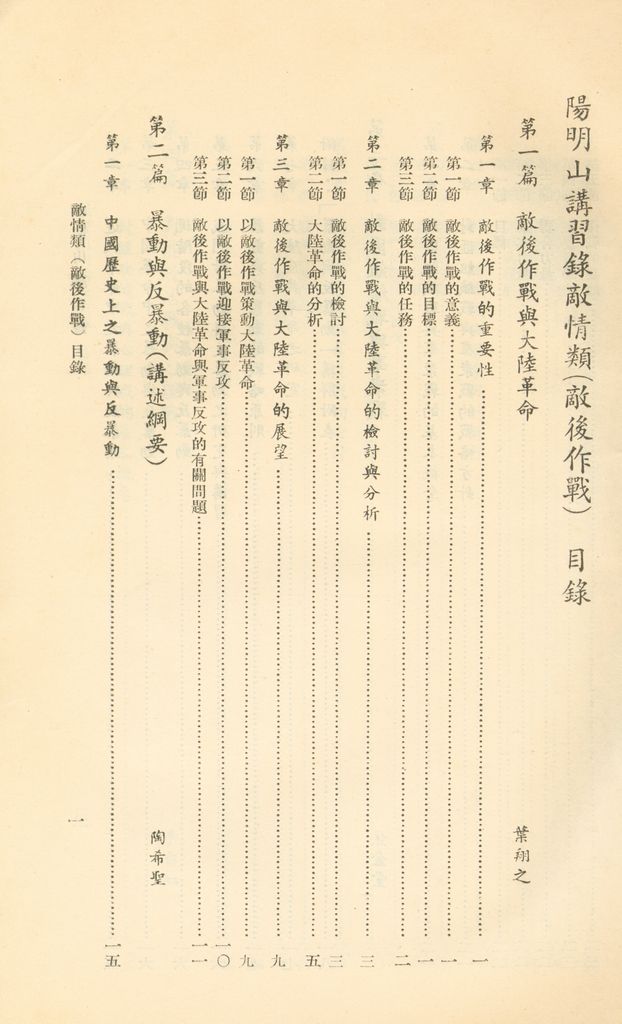 陽明山講習錄敵情類（敵後作戰）　目錄
第一篇　敵後作戰與大陸革命　葉翔之
第一章　敵後作戰的重要性……一
第一節　敵後作戰的意義……一
第二節　敵後作戰的目標……一
第三節　敵後作戰的任務……二
第二章　敵後作戰與大陸革命的檢討與分析……三
第一節　敵後作戰的檢討……三
第二節　大陸革命的分析……五
第三章　敵後作戰與大陸革命的展望……九
第一節　以敵後作戰策動大陸革命……九
第二節　以敵後作戰迎接軍事反攻……一〇
第三節　敵後作戰與大陸革命與軍事反攻的有關問題……一一
第二篇　暴動與反暴動（講述綱要）　陶希聖
第一章　中國歷史上之暴動與反暴動……一五
敵情類（敵後作戰）目錄　一